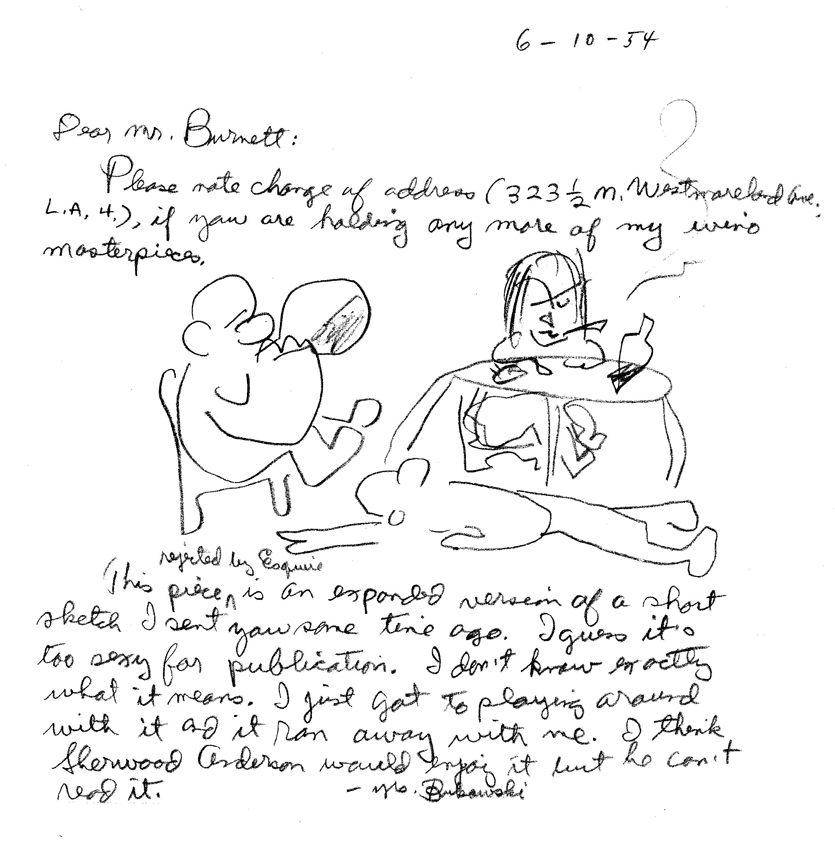 6-10-54
Dear Mr. Burnett:
Please note change of address (323 ½ N. Westmoreland Ave.,
L.A, 4.), if you are holding any more of my wino
masterpieces.
rejected by Esquire
This piece ^ is an expanded version of a short
sketch I sent you some time ago. I guess it's
too sexy for publication. I don't know exactly
what it means. I just got to playing around
with it and it ran away with me. I think
Sherwood Anderson would enjoy it but he can't
read it.
- Bukowski